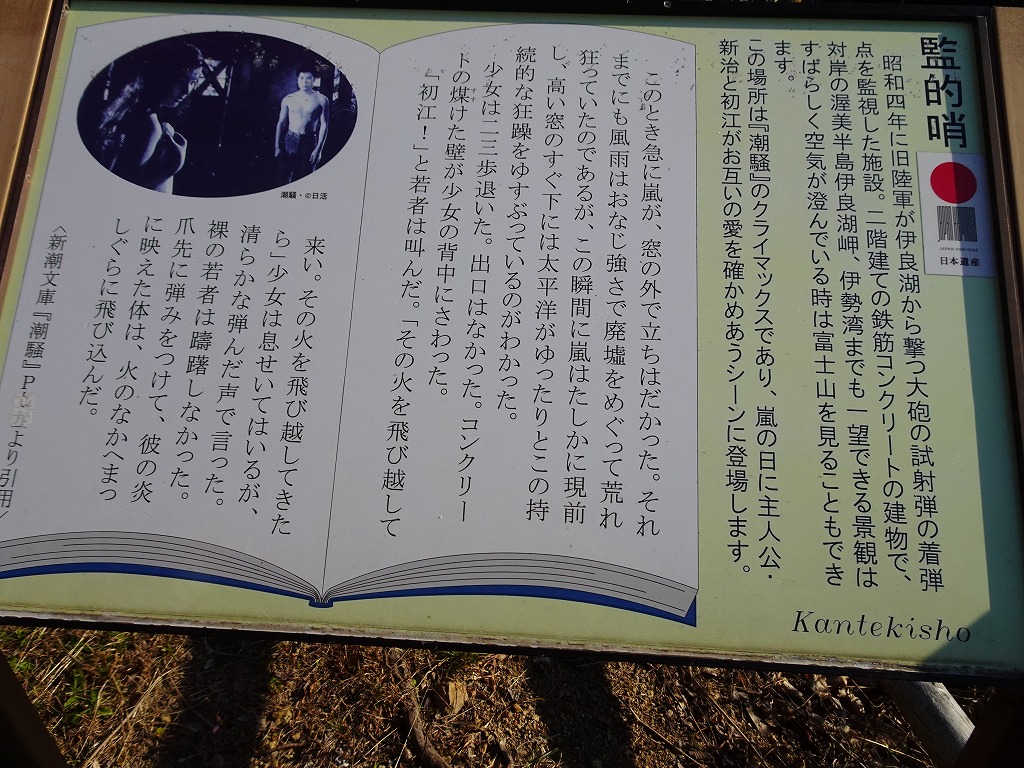 監的哨
JAPAN HERITAGE
日本遺産
昭和四年に旧陸軍が伊良湖から撃つ大砲の試射弾の着弾
点を監視した施設。二階建ての鉄筋コンクリートの建物で、
対岸の渥美半島伊良湖岬、伊勢湾までも一望できる景観は
すばらしく空気が澄んでいる時は富士山を見ることもでき
ます。
この場所は『潮騒』のクライマックスであり、嵐の日に主人公・
新治と初江がお互いの愛を確かめあうシーンに登場します。
Kantekisho
このとき急に嵐が、窓の外で立ちはだかった。それ
までにも風雨はおなじ強さで廃墟をめぐって荒れ
狂っていたのであるが、この瞬間に嵐はたしかに現前
し、高い窓のすぐ下には太平洋がゆったりとこの持
続的な狂躁をゆすぶっているのがわかった。
少女は二三歩退いた。出口はなかった。コンクリー
トの煤けた壁が少女の背中にさわった。
『初江！』と若者は叫んだ。「その火を飛び越して
来い。その火を飛び越してきた
ら」少女は息せいてはいるが、
清らかな弾んだ声で言った。
裸の若者は躊躇しなかった。
爪先に弾みをつけて、彼の炎
に映えた体は、火のなかへまっ
しぐらに飛び込んだ。
〈新潮文庫『潮騒』P より引用〉
潮騒・©日活